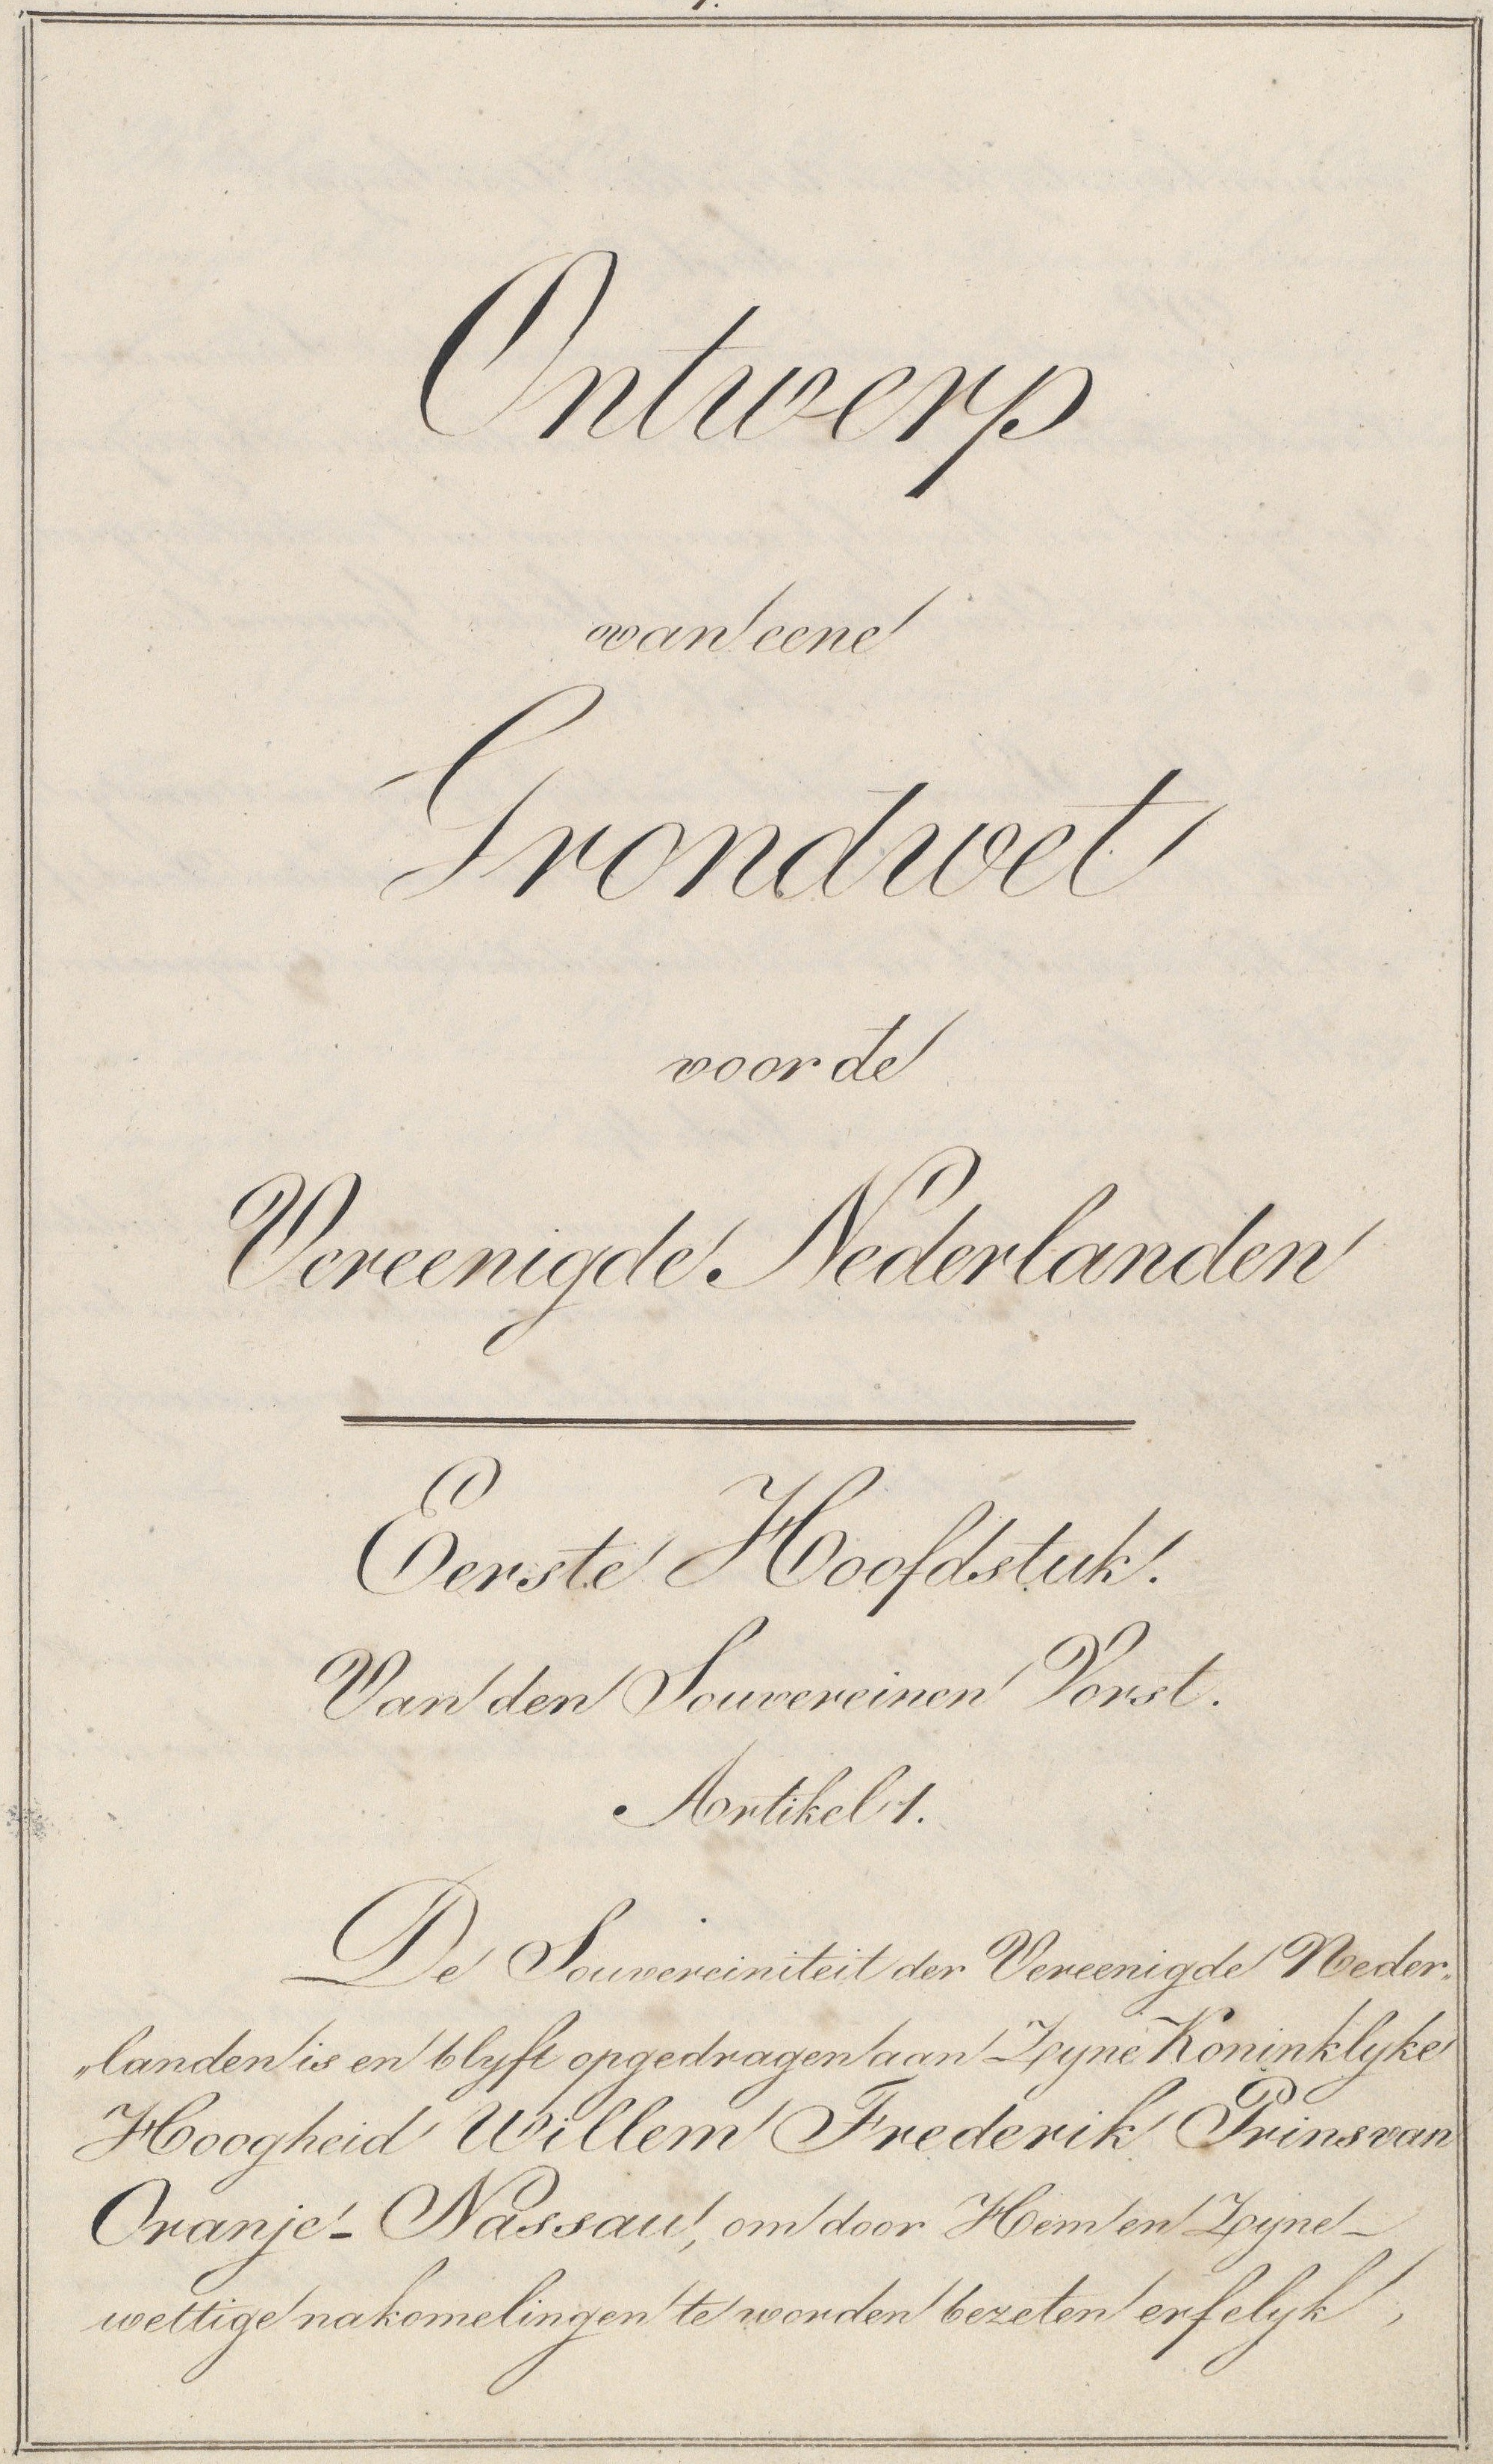 1.
Ontwerp
van eene
Grondwet
voor de
Vereenigde Nederlanden
Eerste Hoofdstuk.
Van den Souvereinen Vorst.
Artikel 1.
De Souvereiniteit der Vereenigde Neder„
„landen is en blyft opgedragen aan Zyne Koninklyke
Hoogheid Willem Frederik Prins van
Oranje-Nassau, om door Hem en Zyne
wettige nakomelingen te worden bezeten erfelyk,